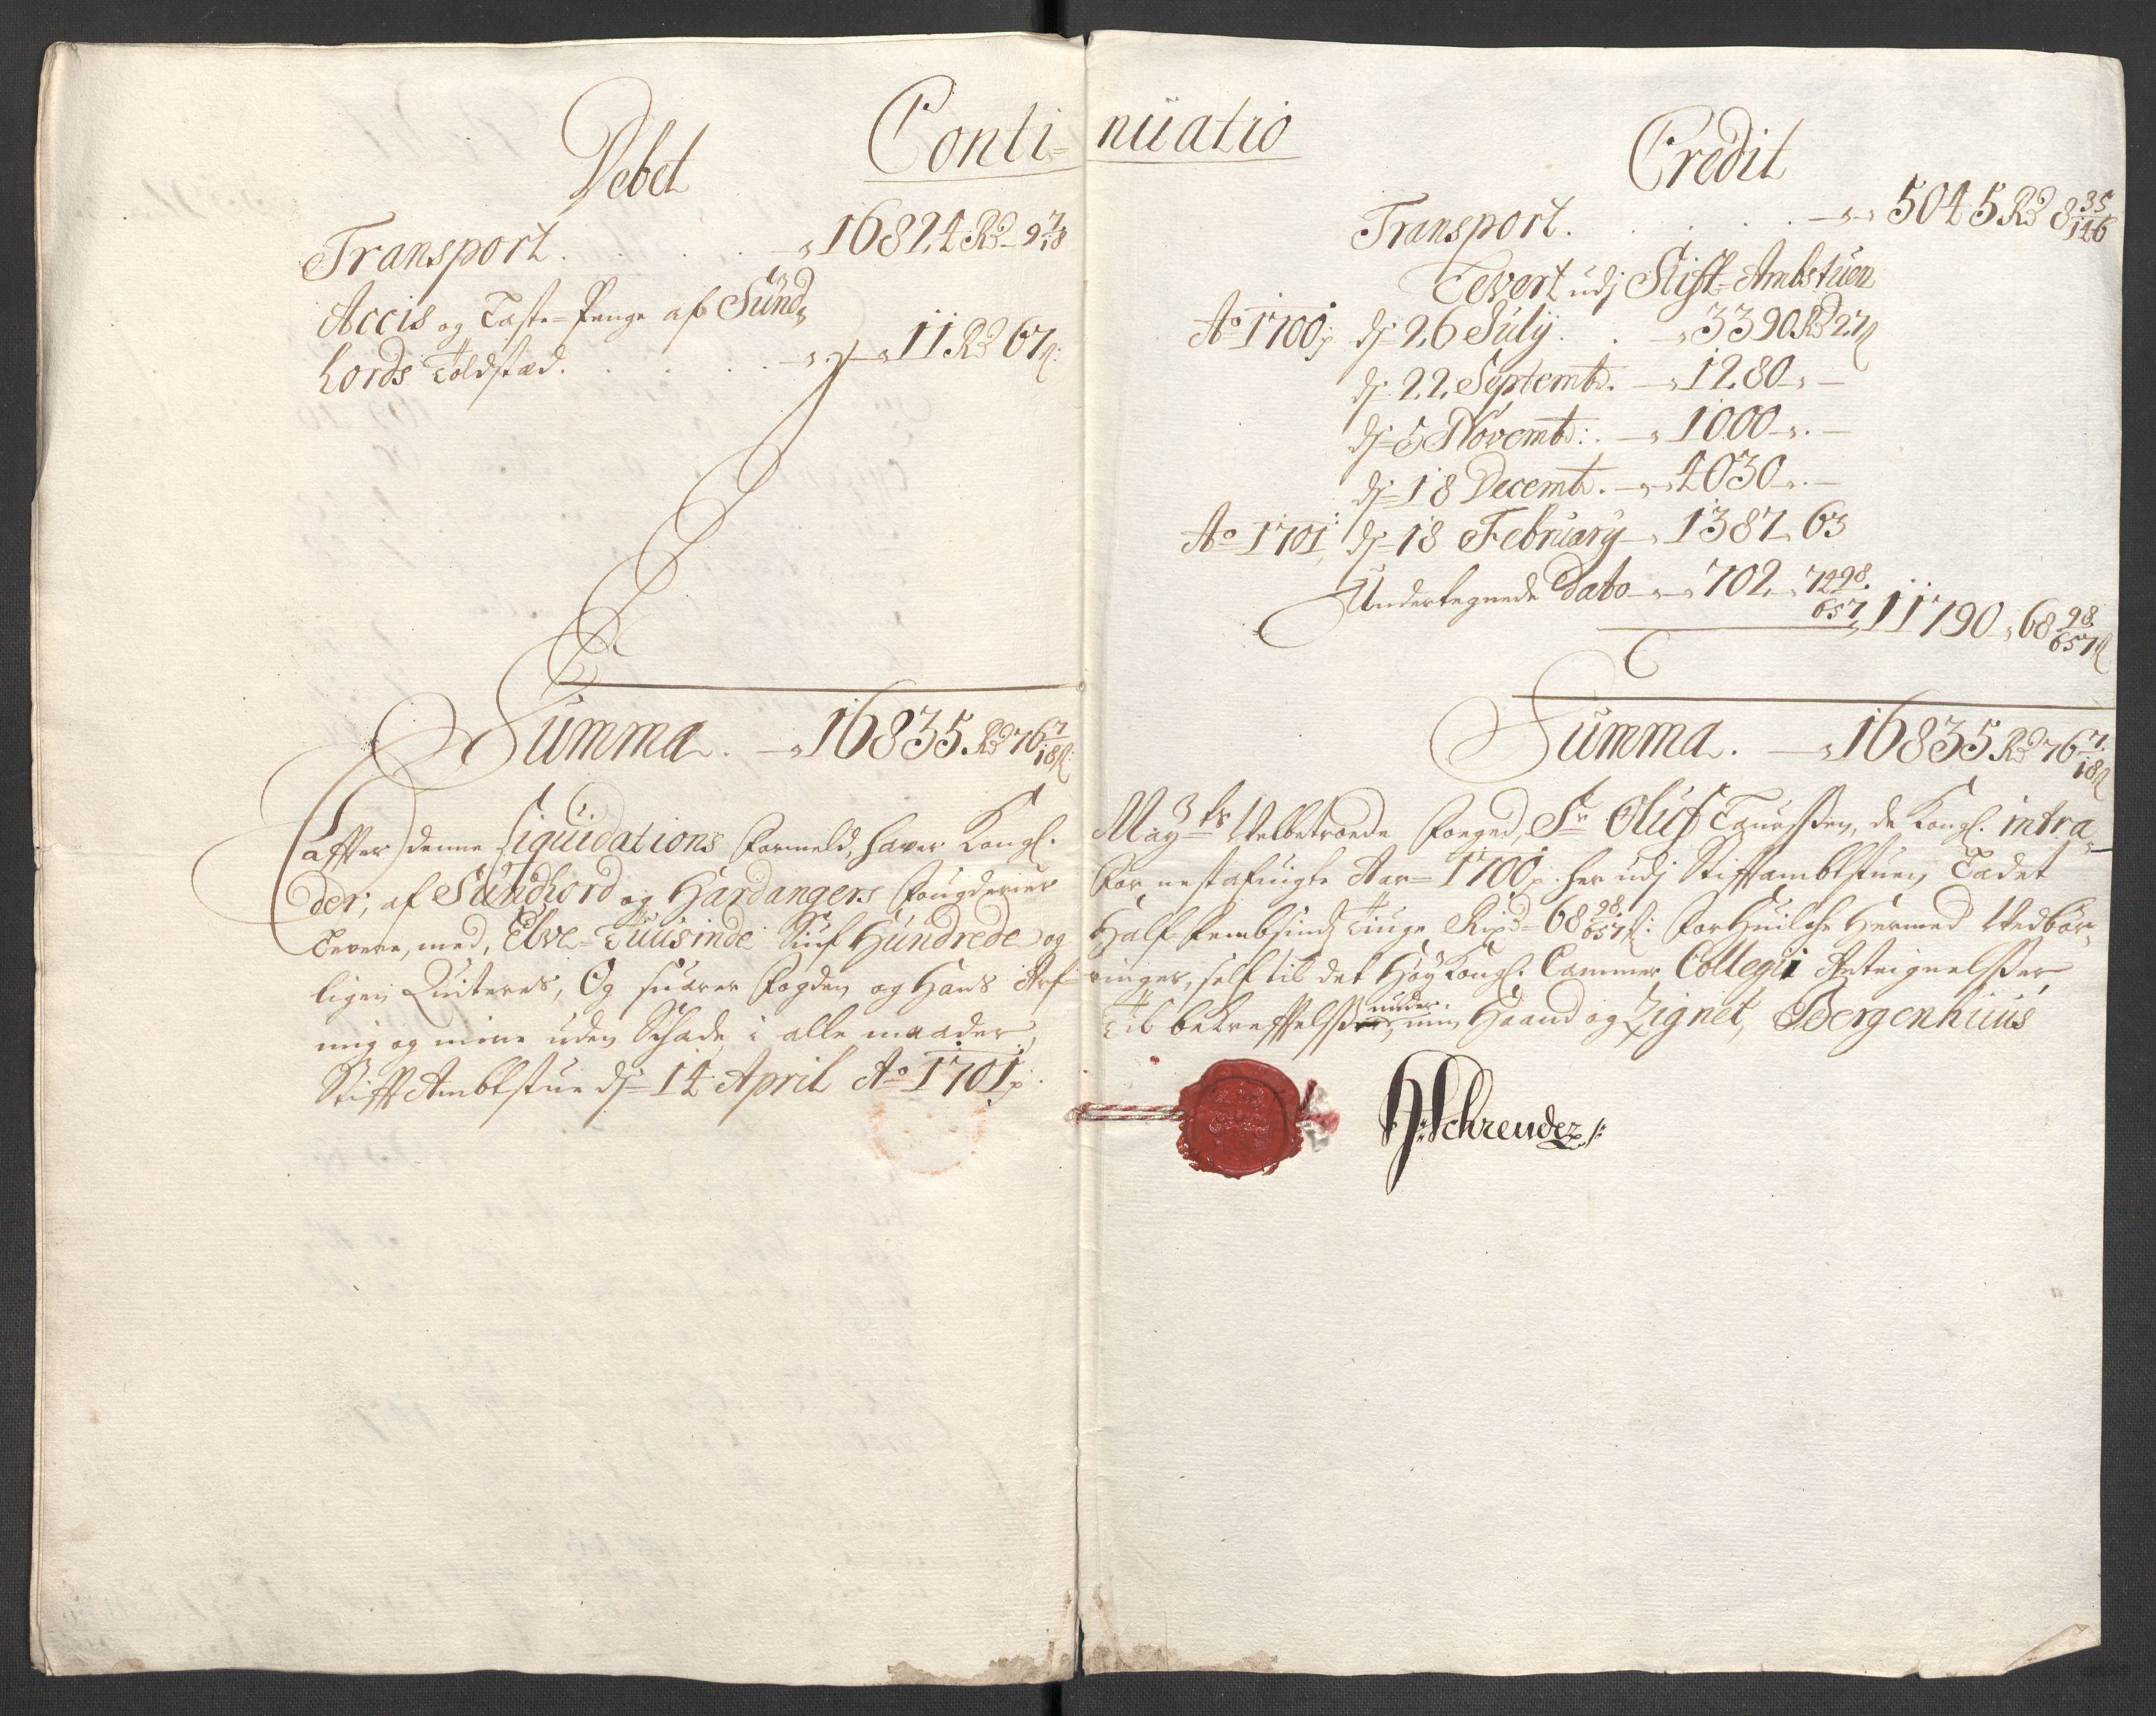 Conti=nuatio
Debet
Transport. . . . . 16824 Rd 9 7/18
Accis og Taste-Penge af Sund,
hords Toldstæd. . . . . 11 Rd 67 ß:
Summa. 16835 Rd 76 7/18 ß:
Credit
Transport. . . . . 5045 Rd 8 35/146
Levert udj Stift-Ambstuen
Ao 1700 dj 26 July. . 3390 Rd 27 ß
dj 22 Septembr. 1280
dj 5 Novembr. 1000
dj 18 Decembr. 4030
Ao 1701 dj 18 February 1387, 63
Undertegnede Dato 702, 74 98/657
11790, 68 98/657 ß
Summa. 16835 Rd 76 7/18 ß
Effter denne Liquidations Formeld, haver Kongl. Mayts Velbetroede Foged, Sr Oluf Laurssen, de Kongl. intra,
der, af Sundhord og Hardangers Fougderier for nestafvigte Aar 1700, her udj Stiftambtstuen Ladet
Levere, med, Elve-Tuusinde Siuf Hundrede og Half Fembsinds Tiuge Rixd 68 98/657 ß: For Huilche Hermed Vedbør,
ligen Quiteres, Og suarer Fogden og Hans Arf=vinger, self til det Høy Kongl. Cammer Collegii Anteignelsser,
mig og mine uden Schade i alle maader, Til bekreffelsse under min Haand og Zignet, Bergenhuus
Stifft Ambtstue dj 14 April Ao 1701
H: Schreuder